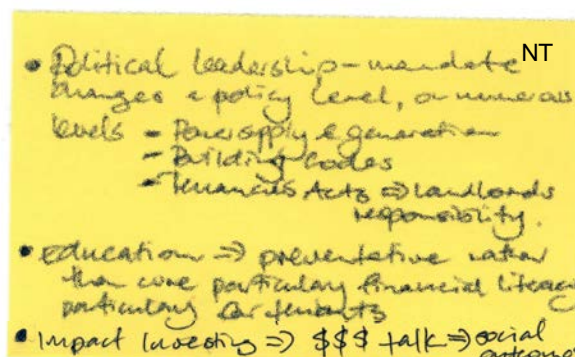 NT
• Political leadership - mandate
changes @ policy level, on numerous
levels - Power supply & generation
- Building Codes
- Tenancies Acts ⇒ landlords
responsibility.
• Education ⇒ preventative rather
than cure particulary financial literacy
particulary for tenants
• Impact Investing ⇒ $$$ talk ⇒ social